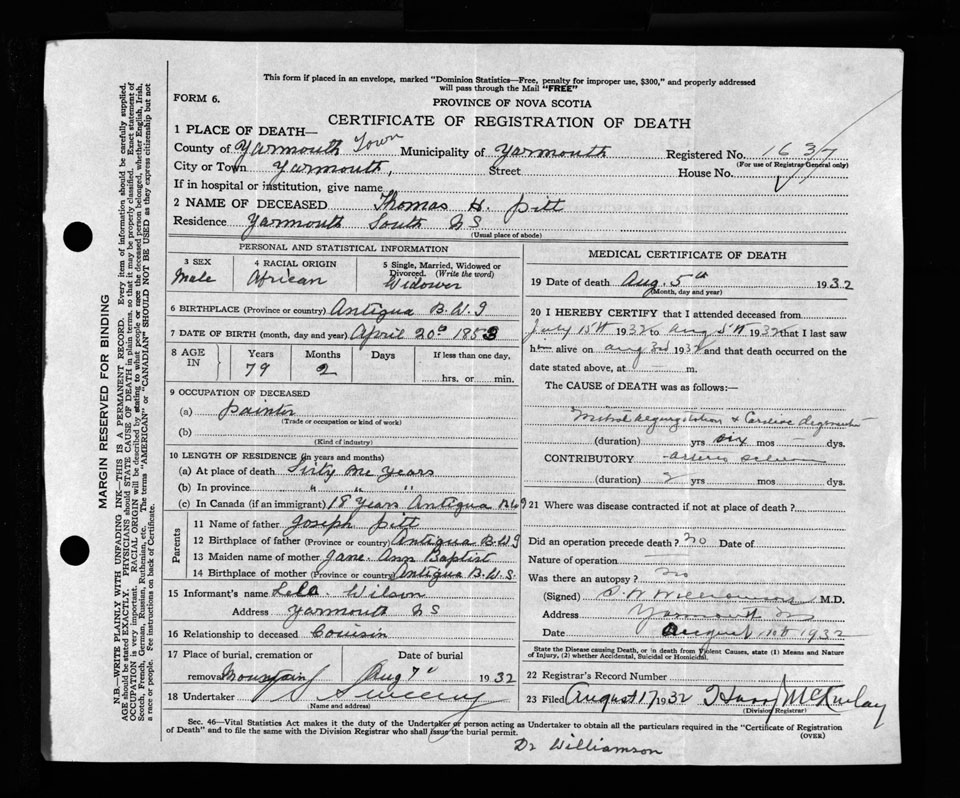 This form if placed in an envelope, marked "Dominion Statistics—Free, penalty for improper use, $300," and properly addressed
will pass through the Mail "FREE"
FORM 6.
PROVINCE OF NOVA SCOTIA
CERTIFICATE OF REGISTRATION OF DEATH
1 PLACE OF DEATH—
County of Yarmouth Town Municipality of Yarmouth Registered No. 1637
(For use of Registrar General only)
City or Town Yarmouth, Street House No.
If in hospital or institution, give name
2 NAME OF DECEASED Thomas H. Pitt
Residence Yarmouth South N S
(Usual place of abode)
PERSONAL AND STATISTICAL INFORMATION
3 SEX Male
4 RACIAL ORIGIN African
5 Single, Married, Widowed or Divorced. (Write the word) Widower
6 BIRTHPLACE (Province or country) Antigua B.W.I
7 DATE OF BIRTH (month, day and year) April 20th 1853
8 AGE IN Years 79 Months 2 Days If less than one day, hrs. or min.
9 OCCUPATION OF DECEASED
(a) painter
(Trade or occupation or kind of work)
(b)
(Kind of industry)
10 LENGTH OF RESIDENCE (in years and months)
(a) At place of death Sixty One Years
(b) In province " " "
(c) In Canada (if an immigrant) 18 Years Antigua
Parents
11 Name of father Joseph Pitt
12 Birthplace of father (Province or country) Antigua B.W.I
13 Maiden name of mother Jane Ann Baptist
14 Birthplace of mother (Province or country) Antigua B.W.
15 Informant's name Lela Wilson
Address Yarmouth N S
16 Relationship to deceased Couisin
17 Place of burial, cremation or removal Mountain
Date of burial Aug 7" 1932
18 Undertaker Sweeny
(Name and address)
MEDICAL CERTIFICATE OF DEATH
19 Date of death Aug. 5th 1932
(Month, day and year)
20 I HEREBY CERTIFY that I attended deceased from
July 15th 1932 to Aug 5th 1932 that I last saw
h alive on Aug 3rd 1932 and that death occurred on the
date stated above, at — m.
The CAUSE of DEATH was as follows:
Mitral Regurgitation & Cardiac
(duration) yrs six mos — dys.
CONTRIBUTORY
(duration) 2 yrs mos dys.
21 Where was disease contracted if not at place of death?
Did an operation precede death? no Date of
Nature of operation —
Was there an autopsy? no
(Signed) Williamson M.D.
Address Yarmouth
Date August 1932
State the Disease causing Death, or in death from Violent Causes, state (1) Means and Nature
of Injury, (2) whether Accidental, Suicidal or Homicidal.
22 Registrar's Record Number
23 Filed August 17 1932
(Division Registrar)
Sec. 46—Vital Statistics Act makes it the duty of the Undertaker or person acting as Undertaker to obtain all the particulars required in the "Certificate of Registration
of Death" and to file the same with the Division Registrar who shall issue the burial permit.
(OVER)
Dr Williamson
MARGIN RESERVED FOR BINDING
N.B.—WRITE PLAINLY WITH UNFADING INK—THIS IS A PERMANENT RECORD. Every item of information should be carefully supplied.
AGE should be stated EXACTLY. PHYSICIANS should STATE CAUSE OF DEATH in plain terms, so that it may be properly classified. Exact statement of
OCCUPATION is very important. RACIAL ORIGIN will be described by stating to what people or race the deceased person belonged, whether English, Irish,
Scotch, French, German, Russian, Ruthenian, etc. The terms "AMERICAN" or "CANADIAN" SHOULD NOT BE USED as they express citizenship but not
a race or people. See instructions on back of Certificate.